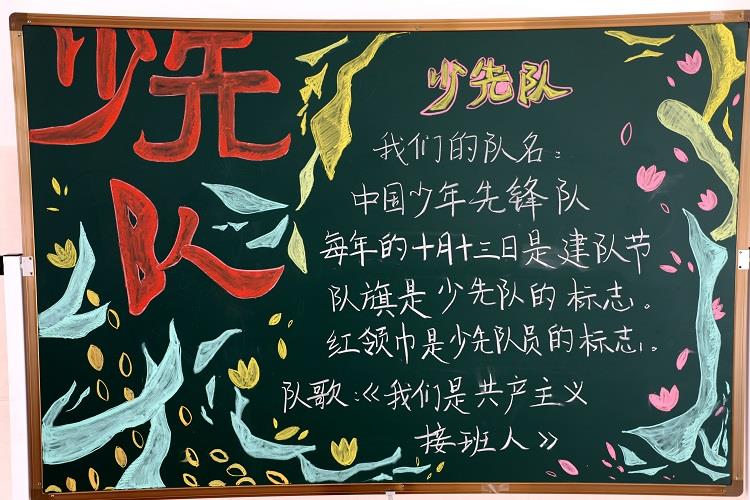 少先
队
少先队
我们的队名：
中国少年先锋队
每年的十月十三日是建队节
队旗是少先队的标志。
红领巾是少先队员的标志。
队歌：《我们是共产主义
接班人》